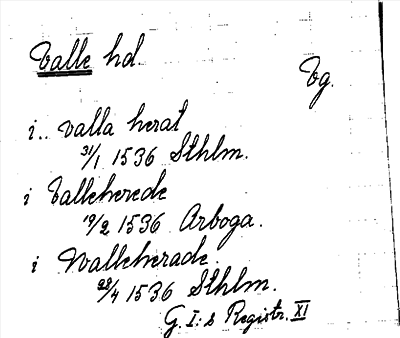 Valle hd.
Vg.
i.. valla herat
31/1 1536 Sthlm.
i Valleherede
19/2 1536 Arboga.
i Walleherade.
28/4 1536 Sthlm.
G. I:s Registr. XI